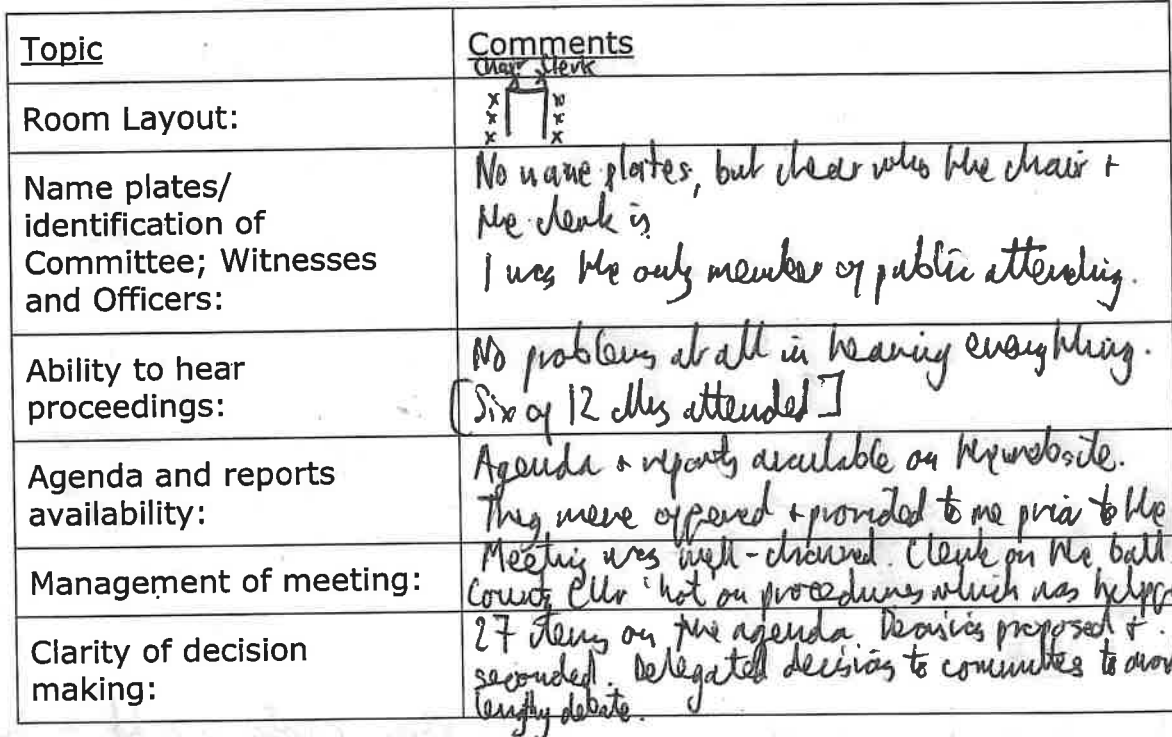 Topic
Comments
Chair Clerk
Room Layout:
x x
x x
x x
Name plates/
identification of
Committee; Witnesses
and Officers:
No name plates, but clear who the chair +
the clerk is
I was the only member of public attending.
Ability to hear
proceedings:
No problems at all in hearing everything.
[Six of 12 cllrs attended]
Agenda and reports
availability:
Agenda + reports available on the website.
They were offered + provided to me prior to the
Management of meeting:
Meeting was well-chaired. Clerk on the ball
County Cllr 'hot on procedures which was
Clarity of decision
making:
27 items on the agenda. Decisions proposed +
seconded. Delegated decisions to committees to
lengthy debate.